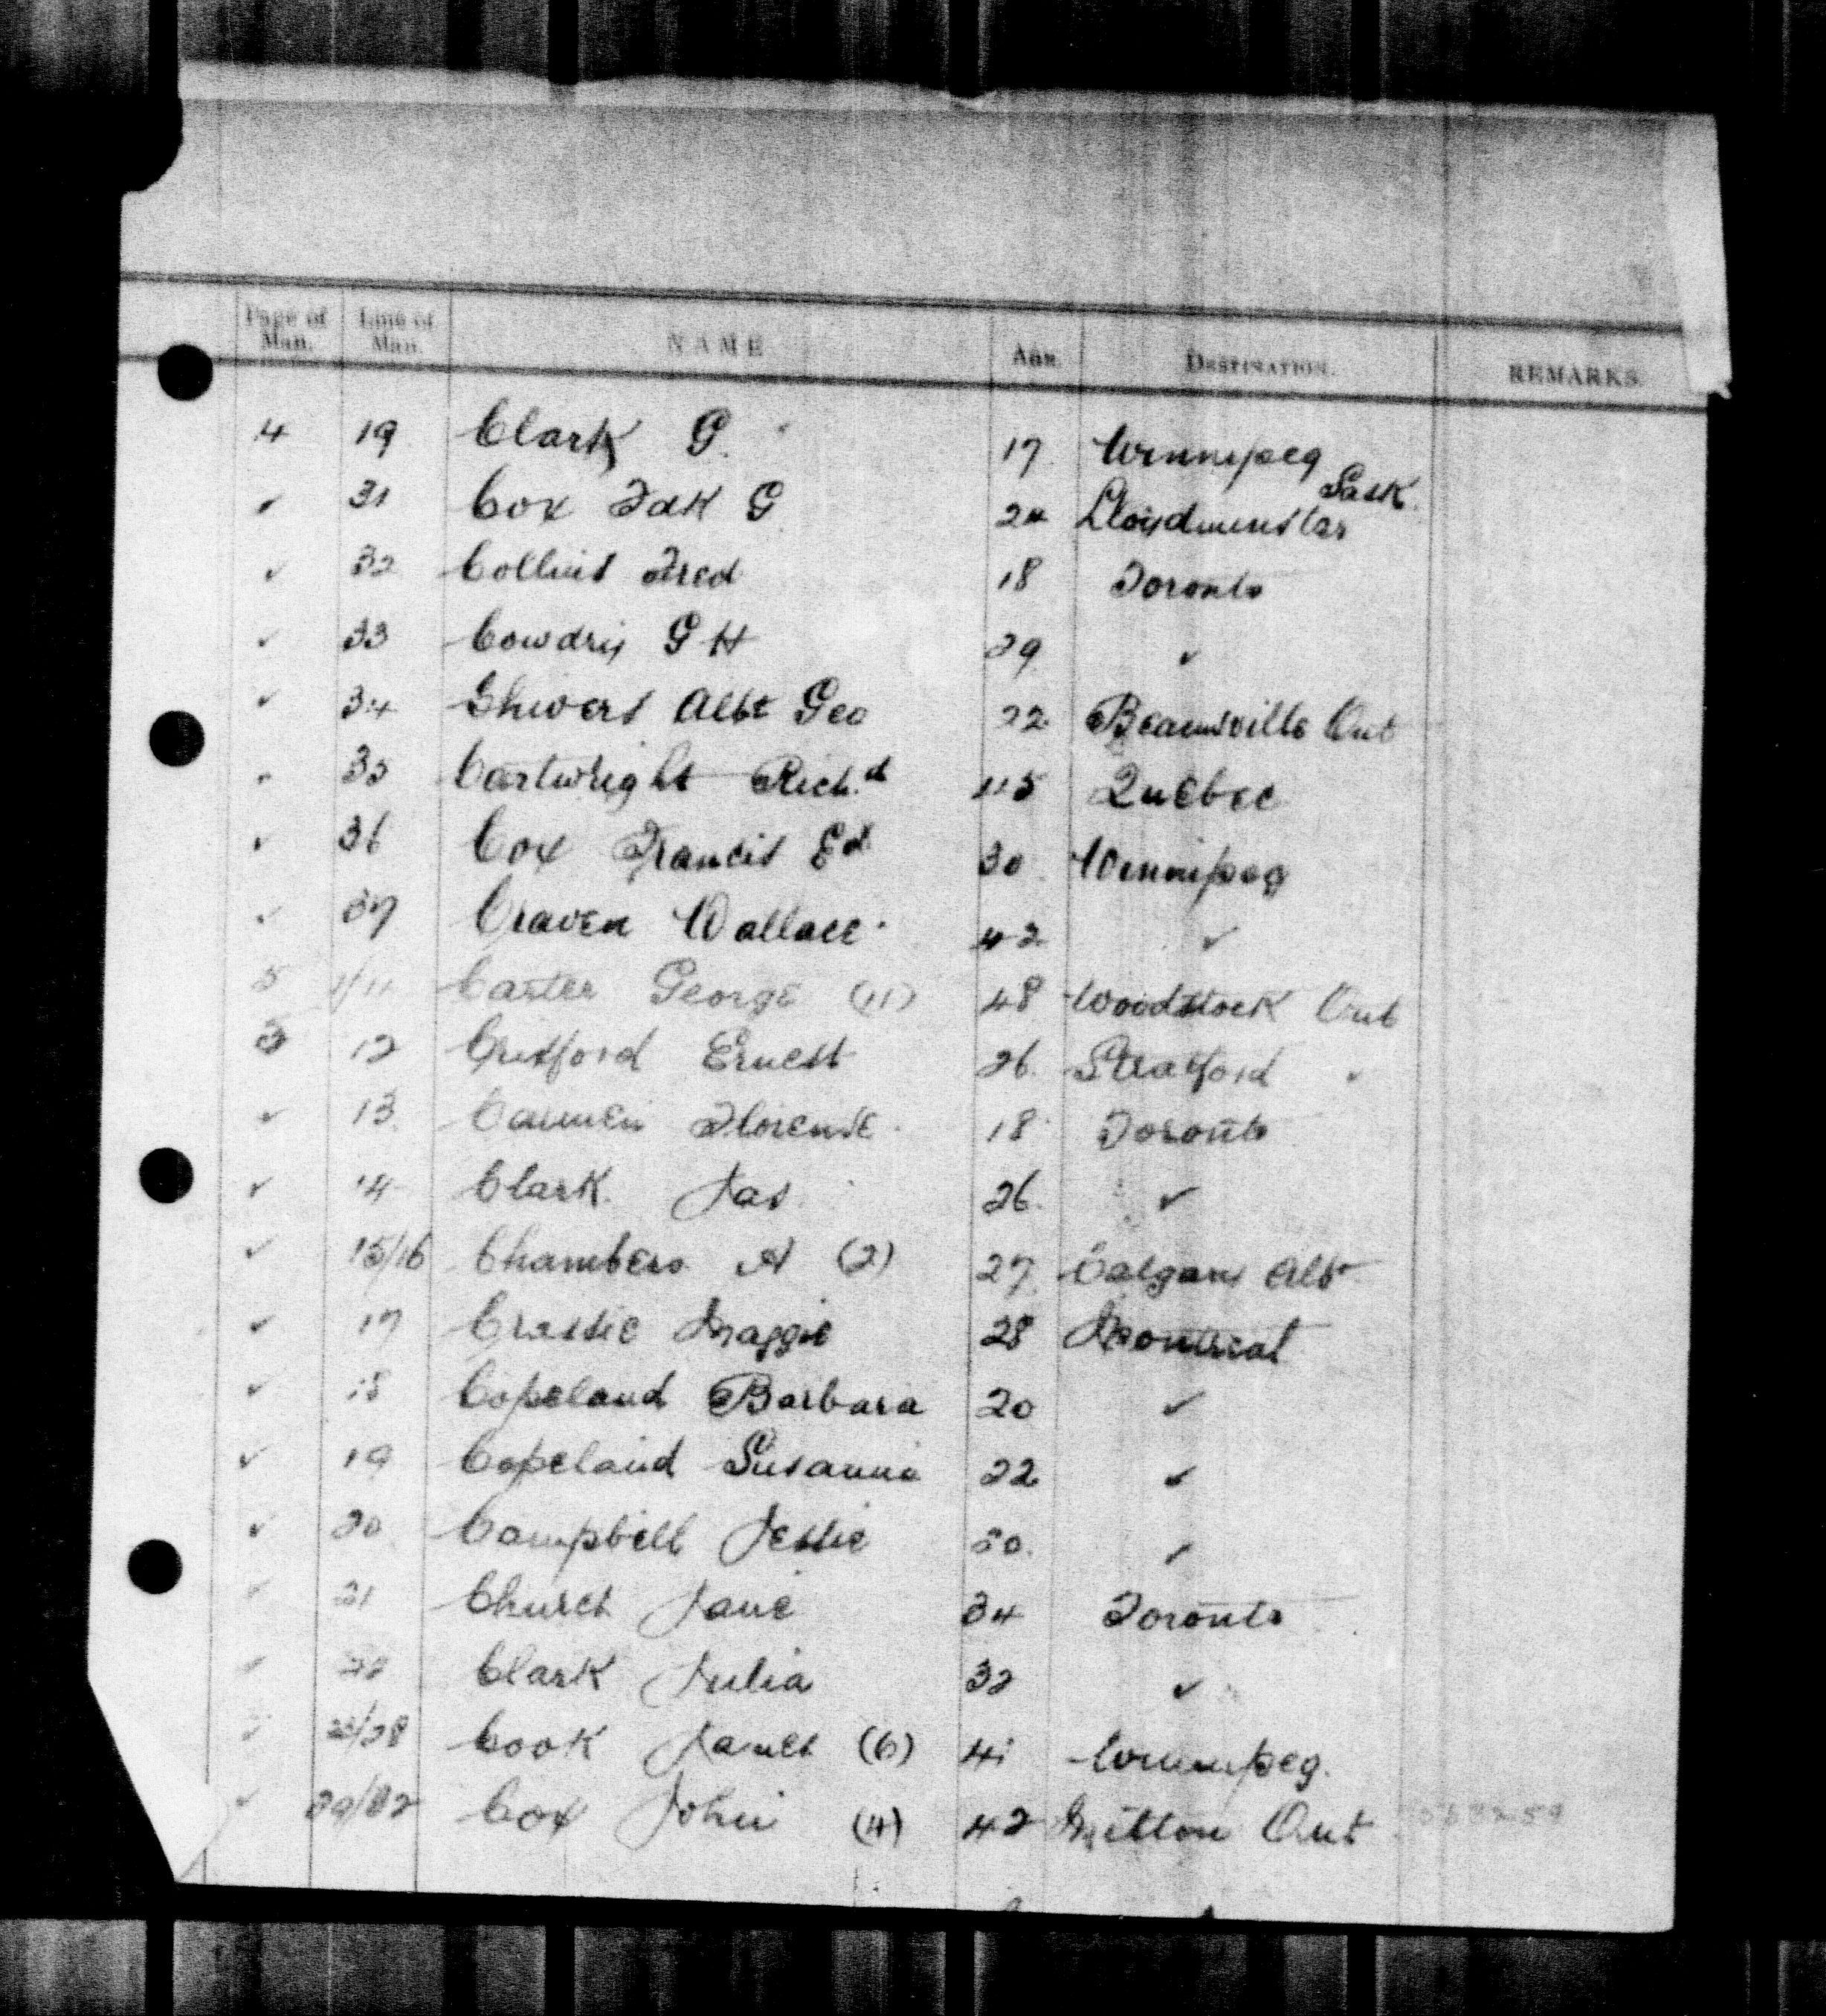 Page of Man. Line of Man. NAME AGE. DESTINATION. REMARKS.
4 19 Clark G. 17 Winnipeg
✓ 31 Cox Fdk G 24 Lloydminster Sask.
✓ 32 Collins Fred 18 Toronto
✓ 33 Cowdrey G H 29 ✓
✓ 34 Chivers Albt Geo 22 Beamsville Ont
✓ 35 Cartwright Richd 45 Quebec
✓ 36 Cox Francis Ed 30 Winnipeg
✓ 37 Craven Wallace 42 ✓
5 1/11 Carter George (11) 48 Woodstock Ont
5 12 Ernest 26 Stratford ✓
✓ 13 Florence 18 Toronto
✓ 14 Clark Jas 26 ✓
✓ 15/16 Chambers A (2) 27 Calgary Alb
✓ 17 Crassie Maggie 28 Montreal
✓ 18 Copeland Barbara 20 ✓
✓ 19 Copeland Susanna 22 ✓
✓ 20 Campbell Jessie 20 ✓
✓ 21 Church Jane 34 Toronto
✓ 22 Clark Julia 32 ✓
✓ 23/28 Cook Janet (6) 41 Winnipeg.
✓ 29/32 Cox John (4) 42 Milton Ont